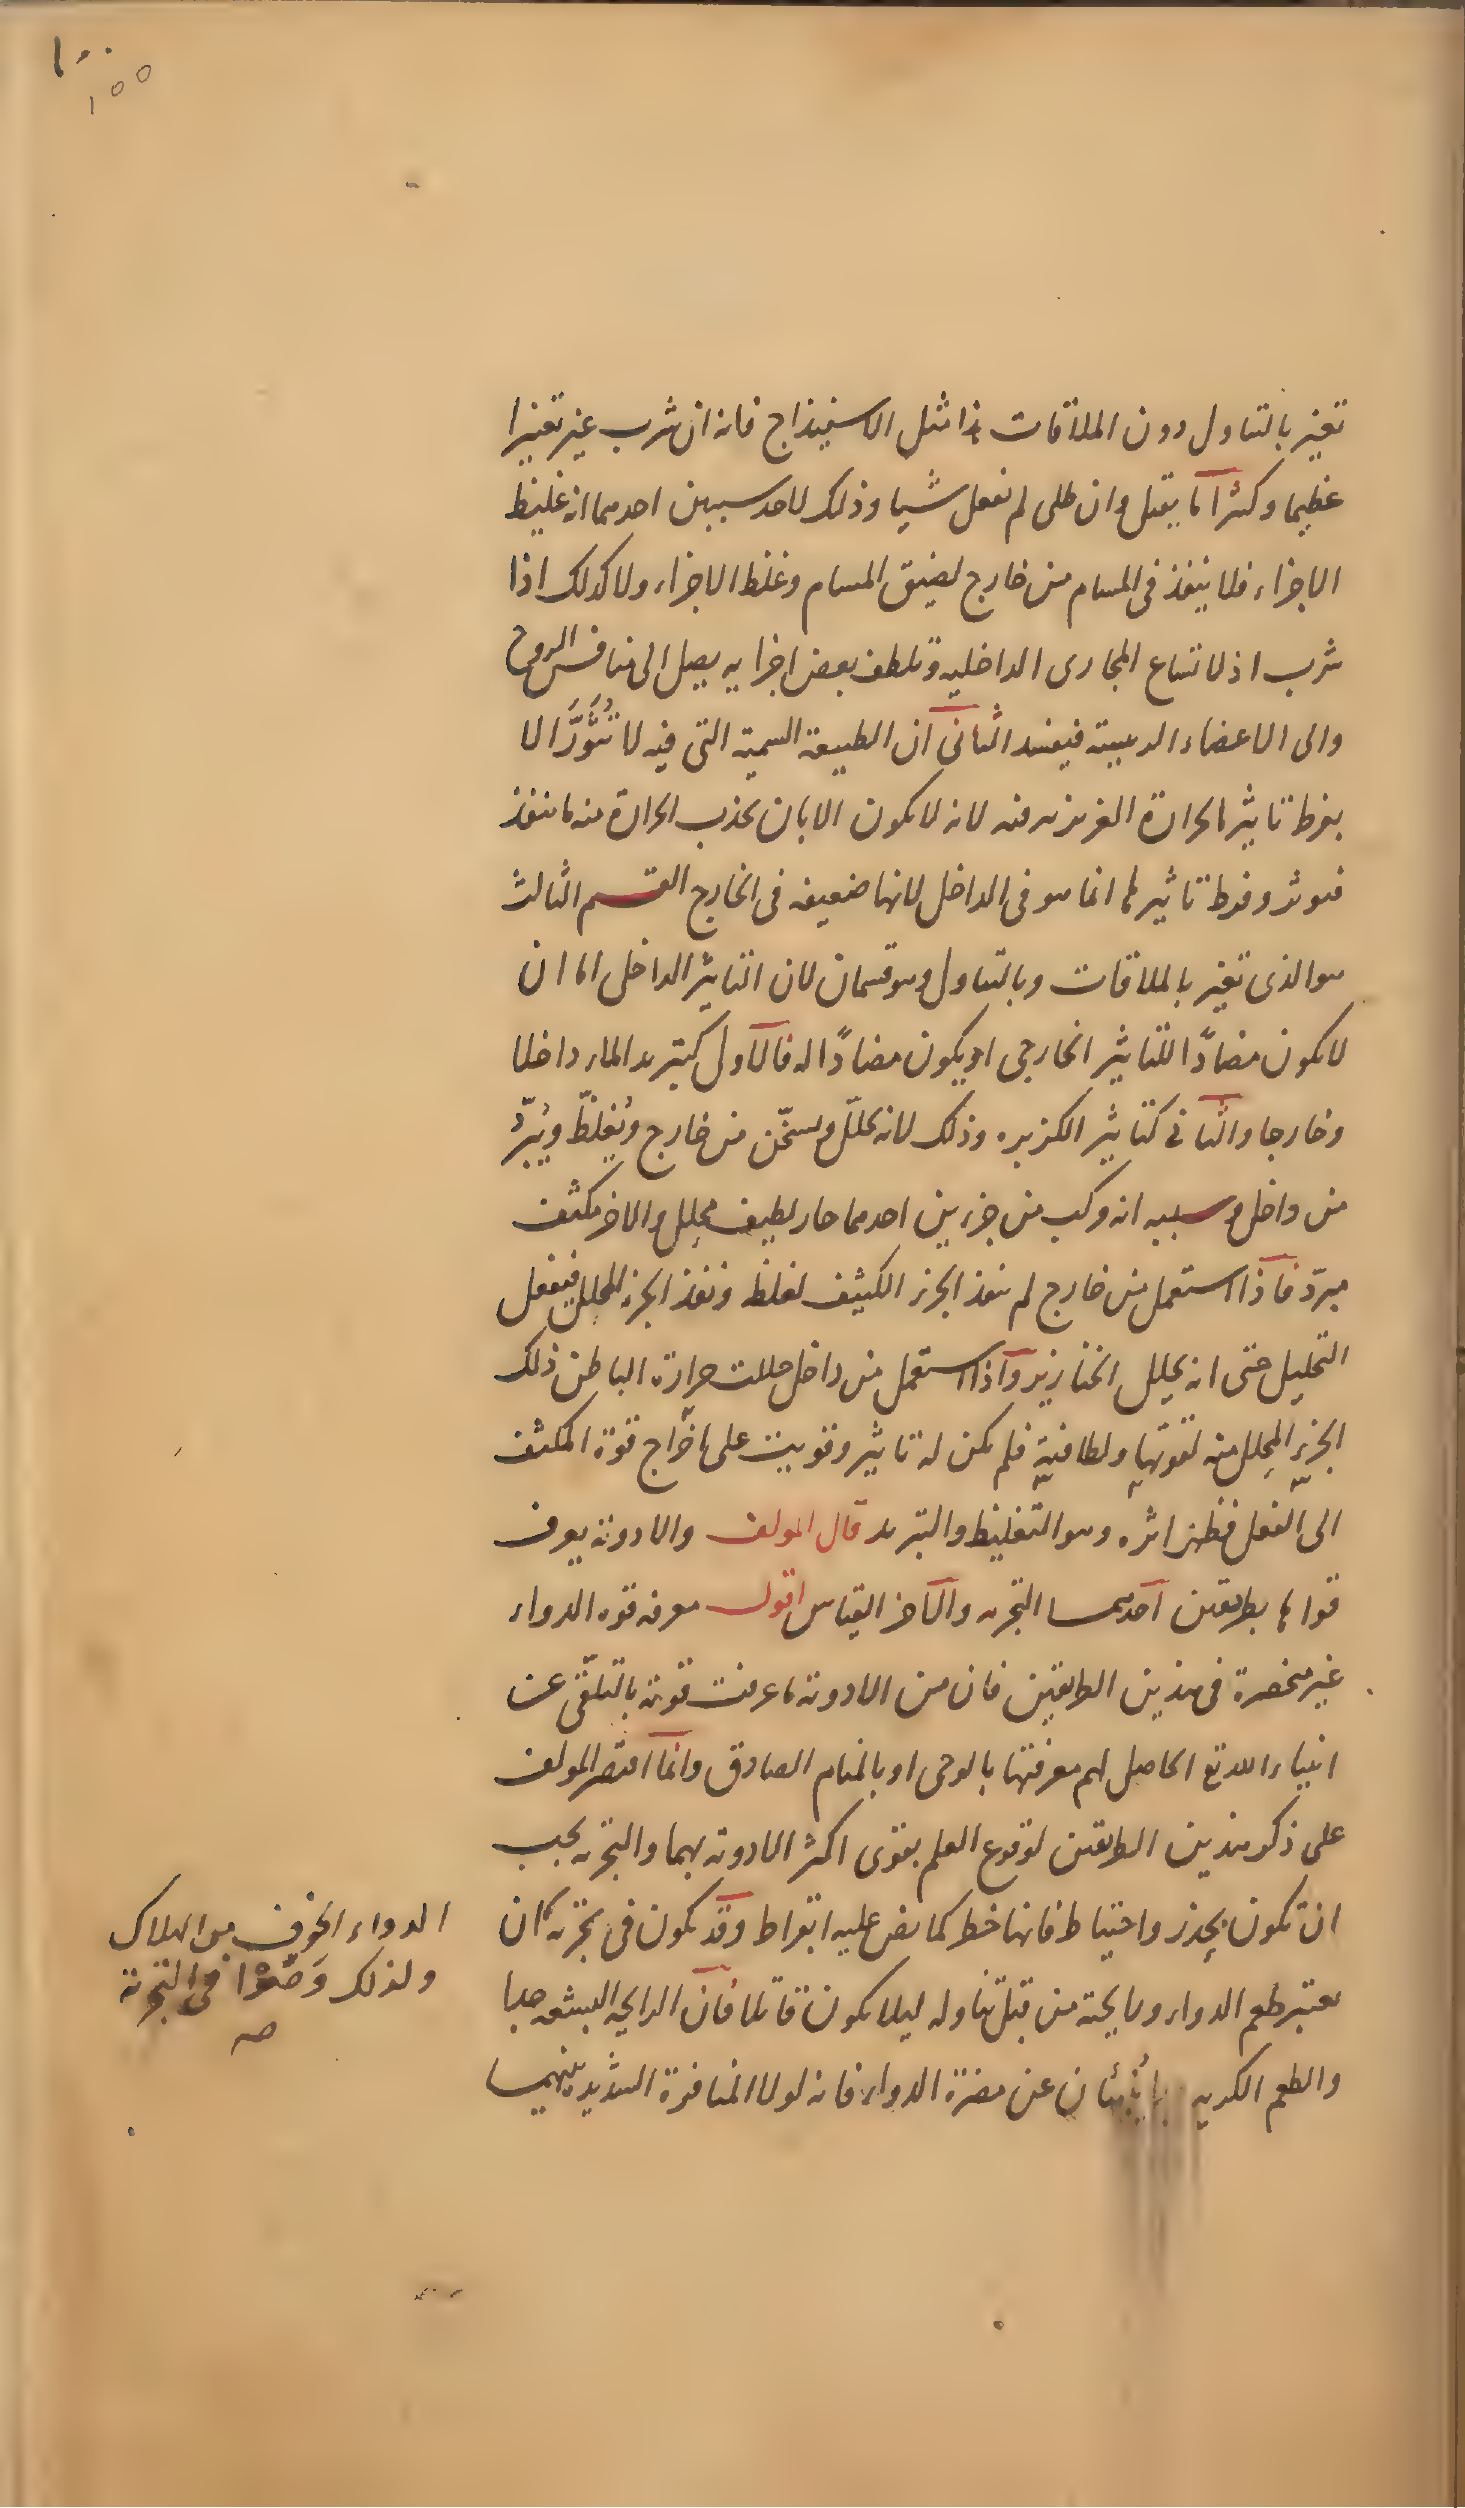 ١٠٠
١٥٥
تغير بالتناول دون الملاقات هذا مثل الاسفيذاج فانه ان شرب غير تغييرا
عظيما وكثيرا ما يقتل وان طلى لم يفعل شيا وذلك لاحد سببين احدهما انه غليظ
الاجزاء فلا ينفذ فى المسام من خارج لضيق المسام وغلظ الاجزاء ولا كذلك اذا
شرب اذ لاتساع المجارى الداخلية وتلطف بعض اجزايه يصل الى منافس الروح
والى الاعضاء الرييسة فيفسد الثانى ان الطبيعة السمية التى فيه لا تثور الا
بفرط تاثير الحرارة الغريزية فيه لانه لا يكون الا بان يجذب الحرارة منه ما ينفذ
فيوثر وفرط تاثيرها انما هو فى الداخل لانها ضعيفة فى الخارج القسم الثالث
هو الذى تغير بالملاقات وبالتناول وهو قسمان لان التاثير الداخل اما ان
لا يكون مضادًّا للتاثير الخارجى او يكون مضادًّا له فالاول كتبريد الماء داخلا
وخارجا والثانى كتاثير الكزبره وذلك لانه يحلّل ويسخّن من خارج ويُغلظّ ويُبرّد
من داخل وسببه انه مركب من جزءين احدهما حار لطيف محلل والاخر مكثف
مبرّد فاذا استعمل من خارج لم ينفذ الجزء الكثيف لغلظه ونفذ الجزء المحلل فيفعل
التحليل حتى انه يحلل الخنازير واذا استعمل من داخل حللت حرارة الباطن ذلك
الجزء المحلل منه لقوتها ولطافته فلم يكن له تاثير وقويت على اخراج قوة المكثف
الى الفعل فظهر اثره وهو التغليظ والتبريد قال المولف والادوية يعرف
قواها بطريقين احدهما التجربه والاخر القياس اقول معرفة قوة الدواء
غير منحصرة فى هذين الطريقين فان من الادوية ما عرفت قوته بالتلقّى عن
انبياء الله تع الحاصل لهم معرفتها بالوحى او بالمنام الصادق وانما اقتصر المولف
على ذكر هذين الطريقين لوقوع العلم بقوى اكثر الادوية بهما والتجربة يجب
ان تكون بحذر واحتياط فانها خطر كما نص عليه ابقراط وقد يكون فى تجربة ان
يعتبر طعم الدواء ورايحته من قبل تناوله ليلا يكون قاتلا فان الرايحة البشعة جدا
والطعم الكريه ينُبئان عن مضرة الدواء فانه لولا المنافرة الشديدة بينهما
الدواء الخوف من الهلاك
ولذلك وَصَّوْا فى التجربة
صح